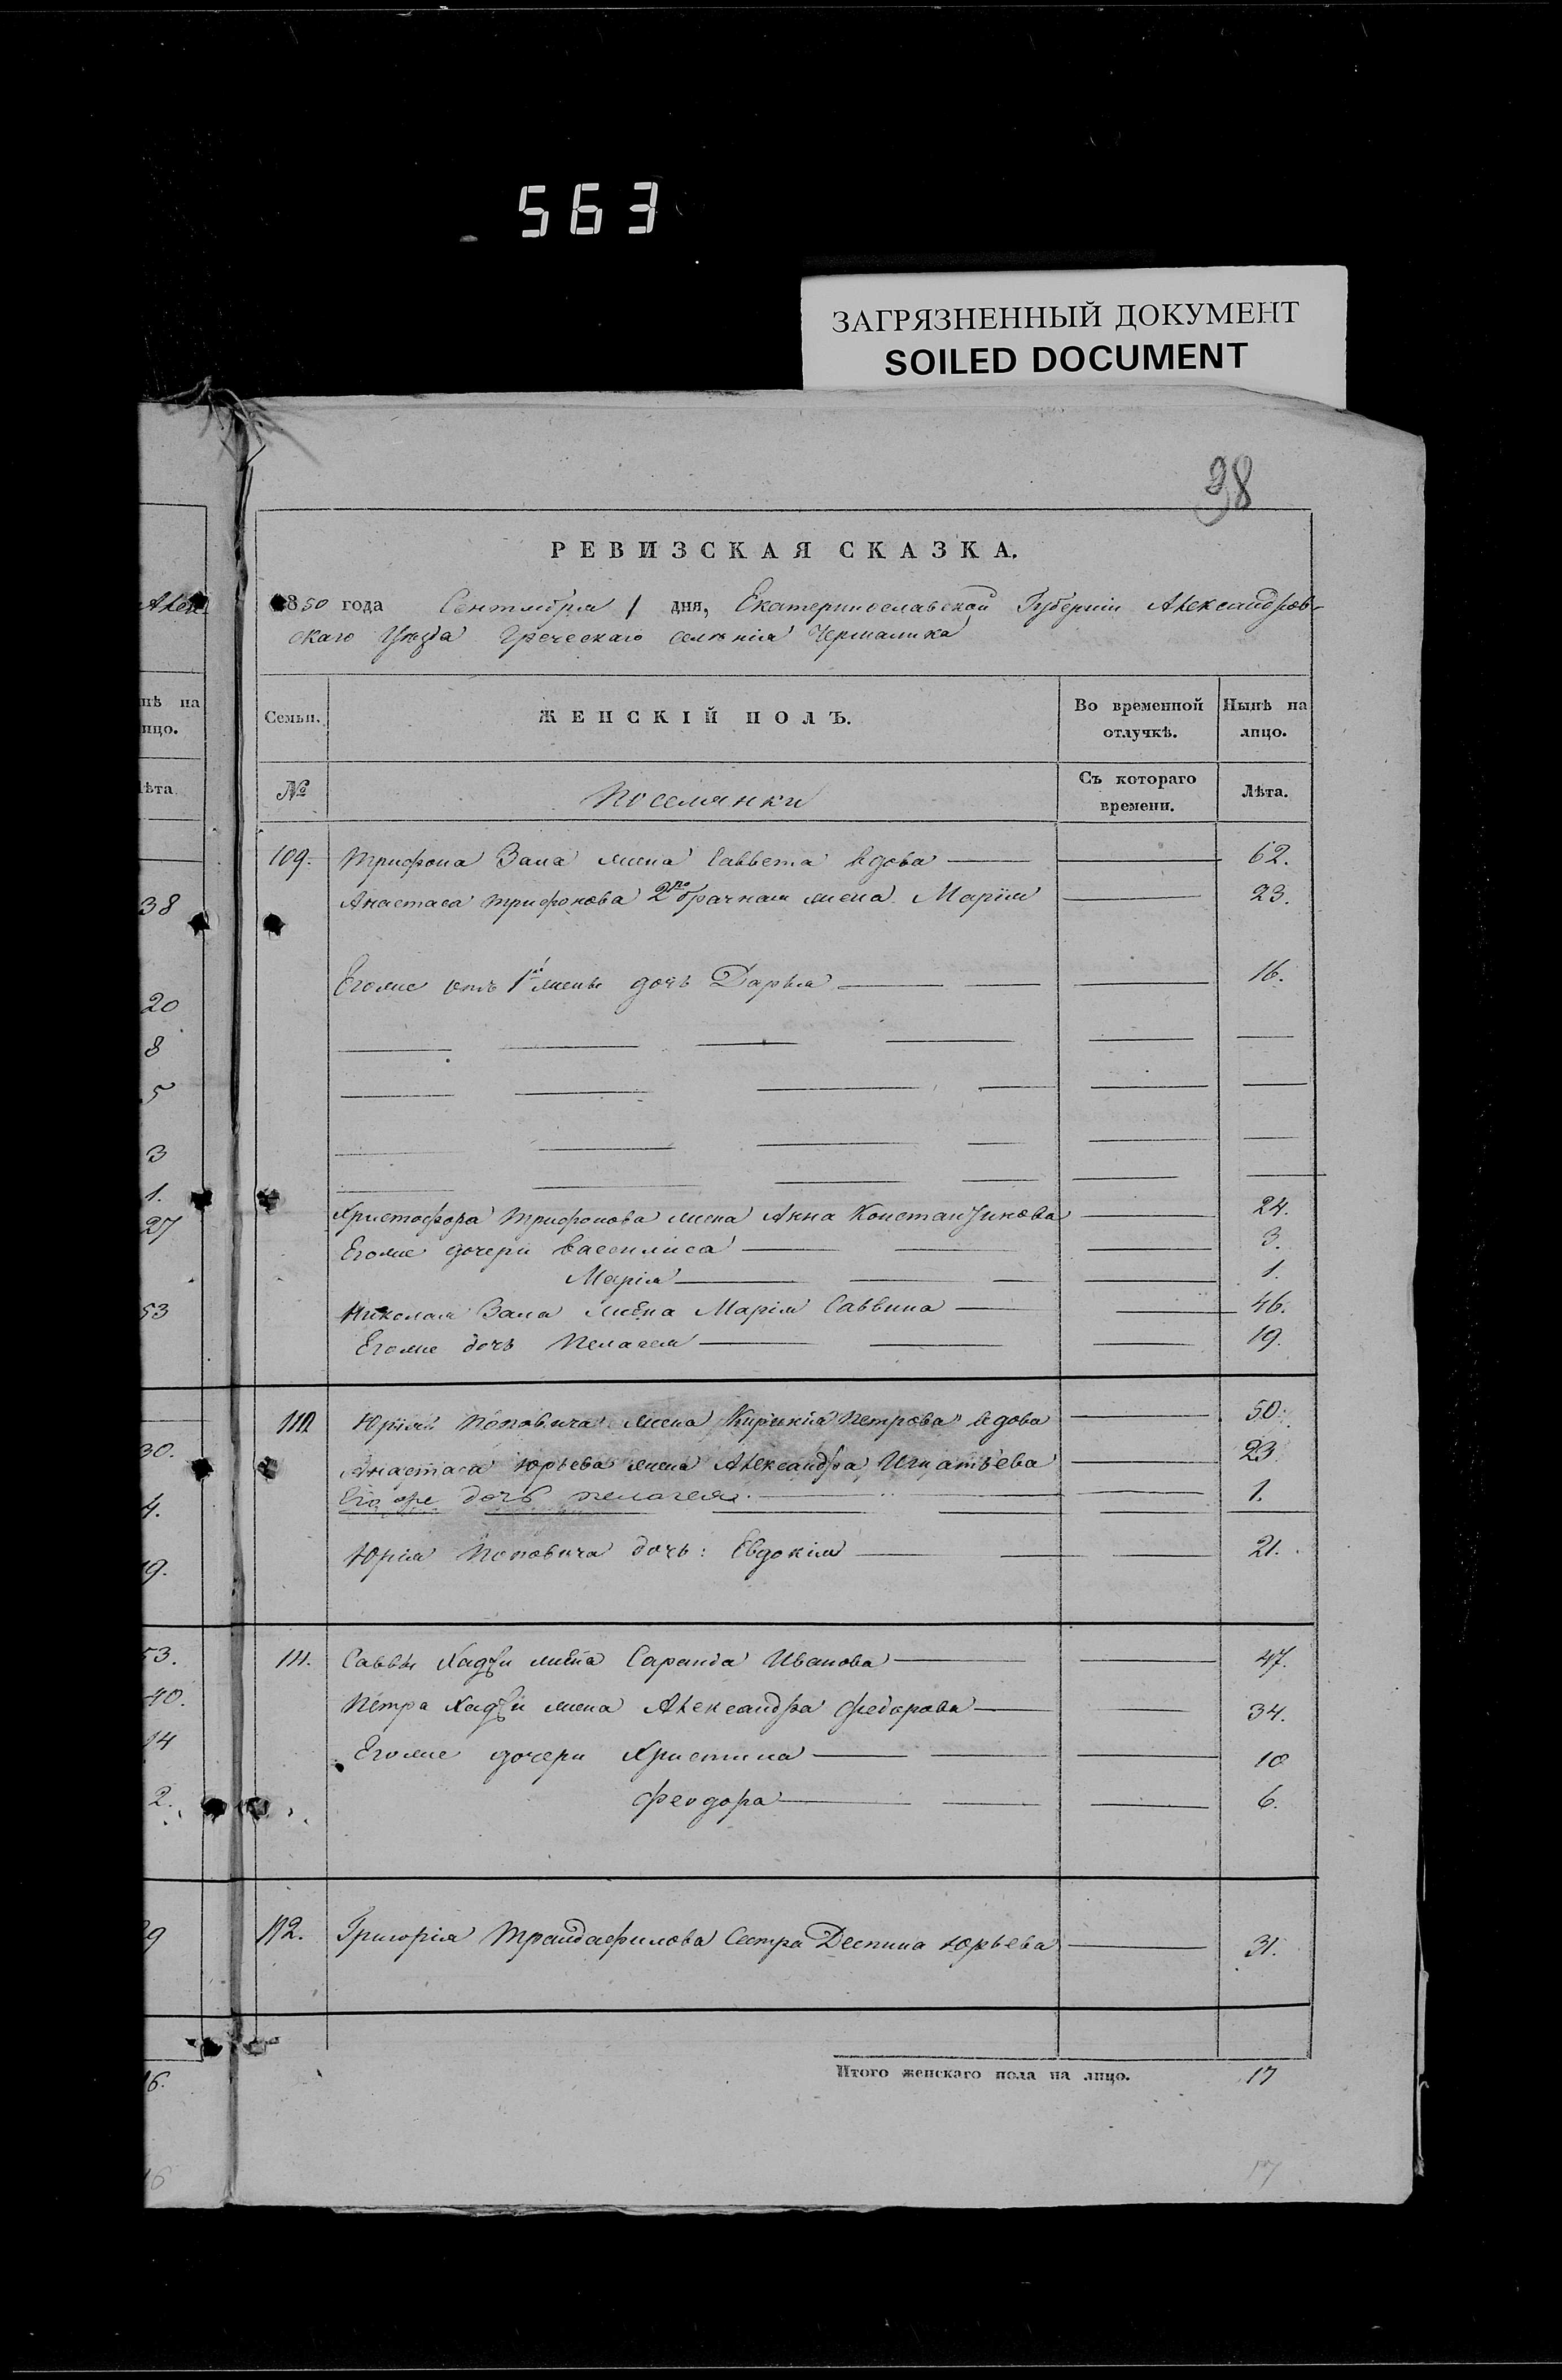 563
ЗАГРЯЗНЕННЫЙ ДОКУМЕНТ
SOILED DOCUMENT
98
РЕВИЗСКАЯ СКАЗКА.
1850 года Сентября 1 дня, Екатеринославской Губерніи Александров-
скаго Уѣзда Греческаго селенія Чермалика
Семьи. ЖЕНСКІЙ ПОЛЪ. Во временной отлучкѣ. Нынѣ на лицо.
№ Поселянки Съ котораго времени. Лѣта.
109. Трифона Зама жена Саввета вдова 62.
Анастаса Трифонова 2го брачная жена Марія 23.
Егоже отъ 1й жены дочь Дарья 16.
Христофора Трифонова жена Анна Константинова 24.
Егоже дочери Василиса 3.
Марія 1.
Николая Зама жена Марія Саввина 46.
Егоже дочь Пелагея 19.
110 Юрія Поповича жена Кирикія Петрова вдова 50.
Анастаса Юрьева жена Александра Игнатьева 23.
Его же дочь пелагея. 1.
Юрія Поповича дочь: Евдокія 21.
111. Саввы Хаджи жена Саранда Иванова 47.
Петра Хаджи жена Александра Федорова 34.
Егоже дочери Христина 10
Феодора 6.
112. Григорія Трандафилова Сестра Деспина Юрьева 31.
Итого женскаго пола на лицо. 17
17
Алек
нѣ на
ицо.
лѣта
38
20
8
5
3
1.
27
53
30.
4.
9.
53.
40.
14
2.
9
16.
16